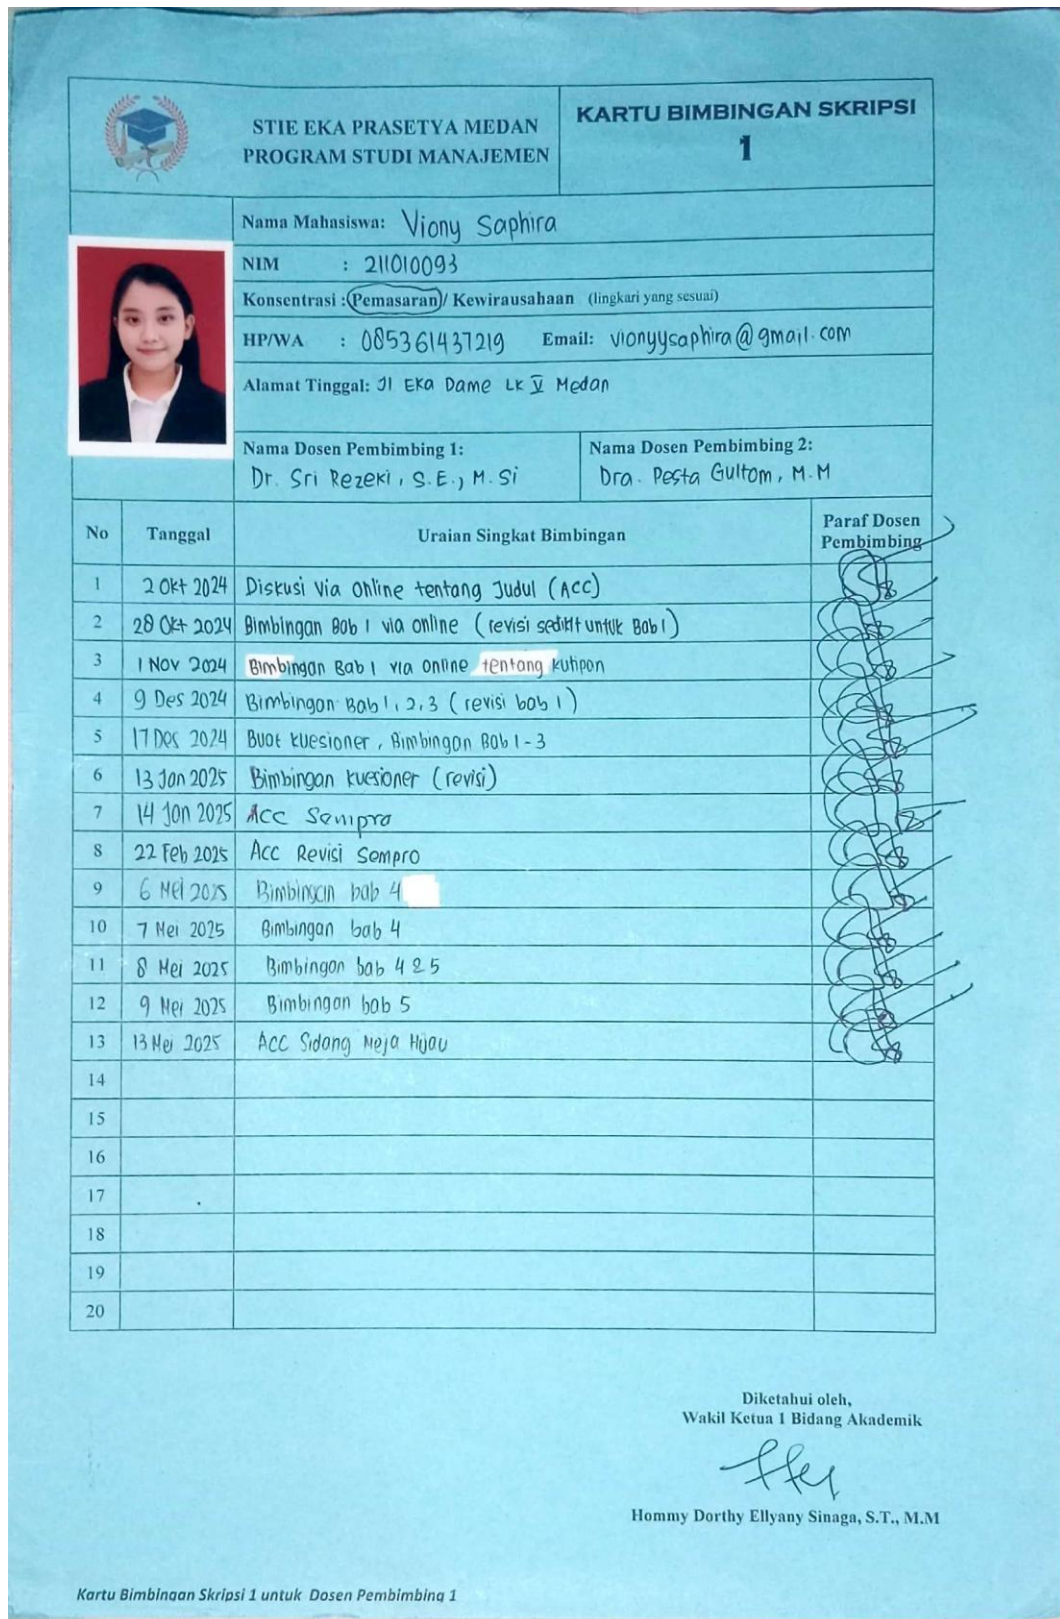 STIE EKA PRASETYA MEDAN
PROGRAM STUDI MANAJEMEN
KARTU BIMBINGAN SKRIPSI
1
Nama Mahasiswa: Viony Saphira
NIM : 211010093
Konsentrasi : Pemasaran / Kewirausahaan (lingkari yang sesuai)
HP/WA : 085361437219 Email: vionyysaphira@gmail.com
Alamat Tinggal: Jl Eka Dame LK V Medan
Nama Dosen Pembimbing 1:
Dr. Sri Rezeki, S.E., M.Si
Nama Dosen Pembimbing 2:
Dra. Pesta Gultom, M.M
No Tanggal Uraian Singkat Bimbingan Paraf Dosen Pembimbing
1 2 Okt 2024 Diskusi Via Online tentang Judul (ACC)
2 28 Okt 2024 Bimbingan Bab 1 via online (revisi sedikit untuk Bab 1)
3 1 Nov 2024 Bimbingan Bab 1 via online tentang kutipan
4 9 Des 2024 Bimbingan Bab 1, 2, 3 (revisi bab 1)
5 17 Des 2024 Buat kuesioner, Bimbingan Bab 1-3
6 13 Jan 2025 Bimbingan kuesioner (revisi)
7 14 Jan 2025 Acc Sempro
8 22 Feb 2025 Acc Revisi Sempro
9 6 Mei 2025 Bimbingan bab 4
10 7 Mei 2025 Bimbingan bab 4
11 8 Mei 2025 Bimbingan bab 4 & 5
12 9 Mei 2025 Bimbingan bab 5
13 13 Mei 2025 Acc Sidang Meja Hijau
14
15
16
17
18
19
20
Diketahui oleh,
Wakil Ketua 1 Bidang Akademik
Hommy Dorthy Ellyany Sinaga, S.T., M.M
Kartu Bimbingan Skripsi 1 untuk Dosen Pembimbing 1